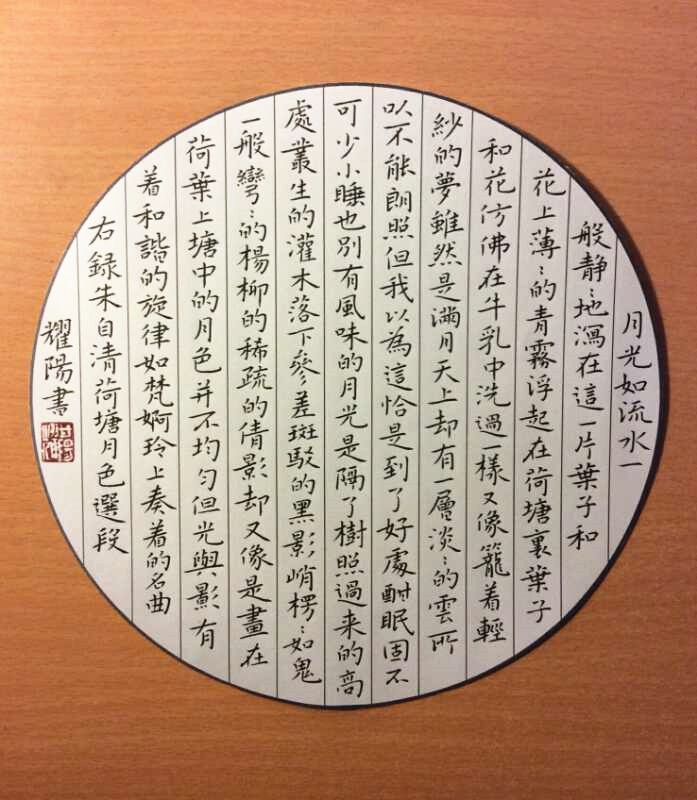 月光如流水一
般静〻地瀉在這一片葉子和
花上薄〻的青霧浮起在荷塘裏葉子
和花仿佛在牛乳中洗過一樣又像籠着輕
紗的夢雖然是滿月天上却有一層淡〻的雲所
以不能朗照但我以為這恰是到了好處酣眠固不
可少小睡也別有風味的月光是隔了樹照過来的高
處叢生的灌木落下參差斑駁的黑影峭楞〻如鬼
一般彎〻的楊柳的稀疏的倩影却又像是畫在
荷葉上塘中的月色并不均匀但光與影有
着和諧的旋律如梵婀玲上奏着的名曲
右録朱自清荷塘月色選段
耀陽書